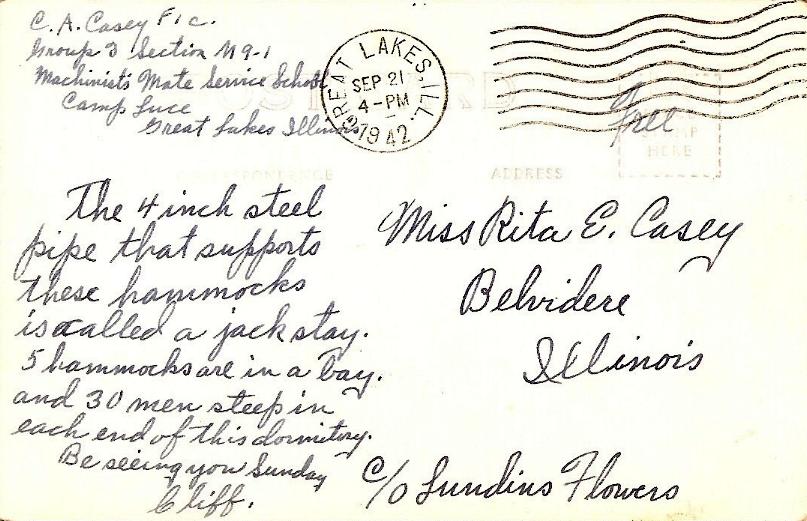 C. A. Casey F1c.
Group 3 Section M9-1
Machinist's Mate Service School
Camp Luce
Great Lakes Illinois
GREAT LAKES, ILL.
SEP 21
4-PM
1942
POST CARD
Free
STAMP
HERE
CORRESPONDENCE
ADDRESS
The 4 inch steel
pipe that supports
these hammocks
is called a jack stay.
5 hammocks are in a bay.
and 30 men sleep in
each end of this dormitory.
Be seeing you Sunday
Cliff.
Miss Rita E. Casey
Belvidere
Illinois
c/o Lundins Flowers